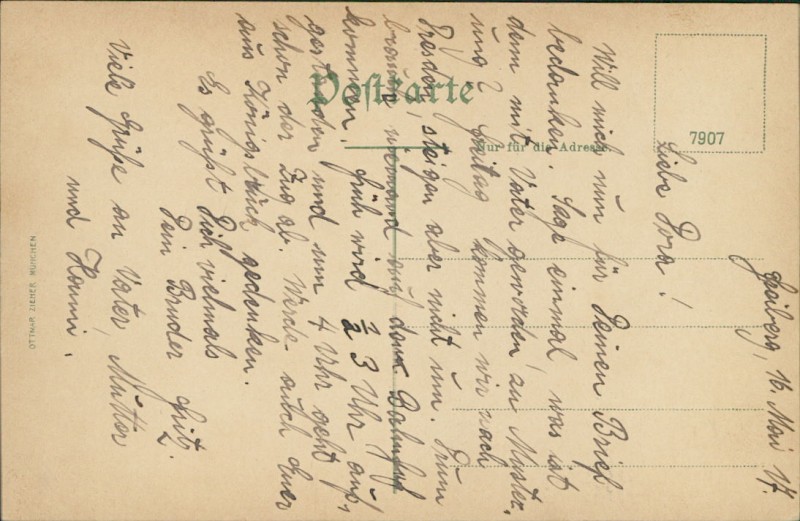 Postkarte
Nur für die Adresse.
7907
OTTMAR ZIEHER MÜNCHEN
Freiberg, 16. Mai 17.
Liebe Dora!
Will mich nun für Deinen Brief
bedanken. Sage einmal was ist
denn mit Vater geworden, an Muster-
ung? Freitag kommen wir nach
Dresden, steigen aber nicht um. Drum
braucht niemand auf dem Bahnhof
kommen, früh wird ½ 3 Uhr auf-
gestanden und um 4 Uhr geht
schon der Zug ab. Werde auch Euer
aus Königsbrück gedenken.
Es grüßt Dich vielmals
Dein Bruder Fritz.
Viele Grüße an Vater, Mutter
und Hanni.